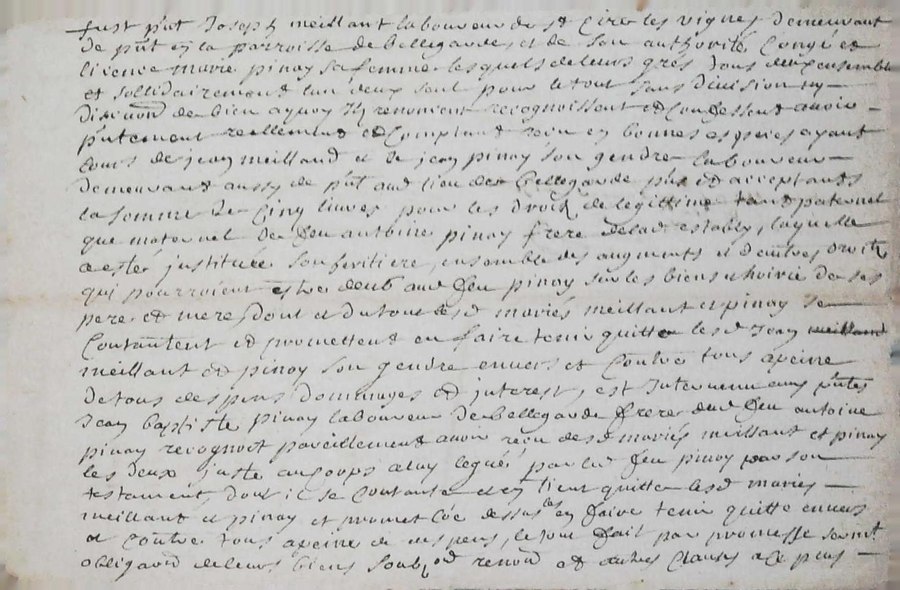 fust p̃nt Joseph meillant laboureur de st Cire les vignes demeurant
de p̃nt en la parroisse de bellegarde, et de son authorité Congé et
licence marie pinay sa femme lesquels de leurs grés tous deux ensemble
et sollidairement l'un deux seul pour le tout sans division ny
discution de bien a quoy ils renoncent recognoissent et Confessent avoir
p̃ntement reellement et Comptant receu en bonnes especes ayant
Cours de jean meilland et de jean pinay son gendre laboureur
demeurant aussy de p̃nt aud lieu de Bellegarde p̃ns et acceptants
la somme de Cinq livres pour les droits de legittime tant paternel
que maternel de feu antoine pinay frere de lad establÿ, laquelle
a esté justituee son heritiere, ensemble des augments et dautres droits
qui pourroient estre deub aud feu pinay sur les biens et hoirie de ses
pere et mere, Dont et du tout lesd mariés meillant et pinay se
Contantent et promettent en faire tenir quitte lesd Jean meilland
meillant et pinay son gendre envers et Contre tous a peine
de tous despens dommages et interest, est Intervenu aux p̃ntes
Jean baptiste pinay laboureur de bellegarde frere dud feu antoine
pinay recognoit pareillement avoir receu desd mariés meillant et pinay
les deux juste au corps a luy legués par led feu pinay par son
testament dont il se Contante et en tient quitte lesd mariés
meillant et pinay et promet Cÿ dessus les en faire tenir quitte envers
et Contre tous a peine de despens, le tout fait par promesse serment
obligaõn de leurs biens soubz oñ renoñ et autres Clauses a Ce p̃ns